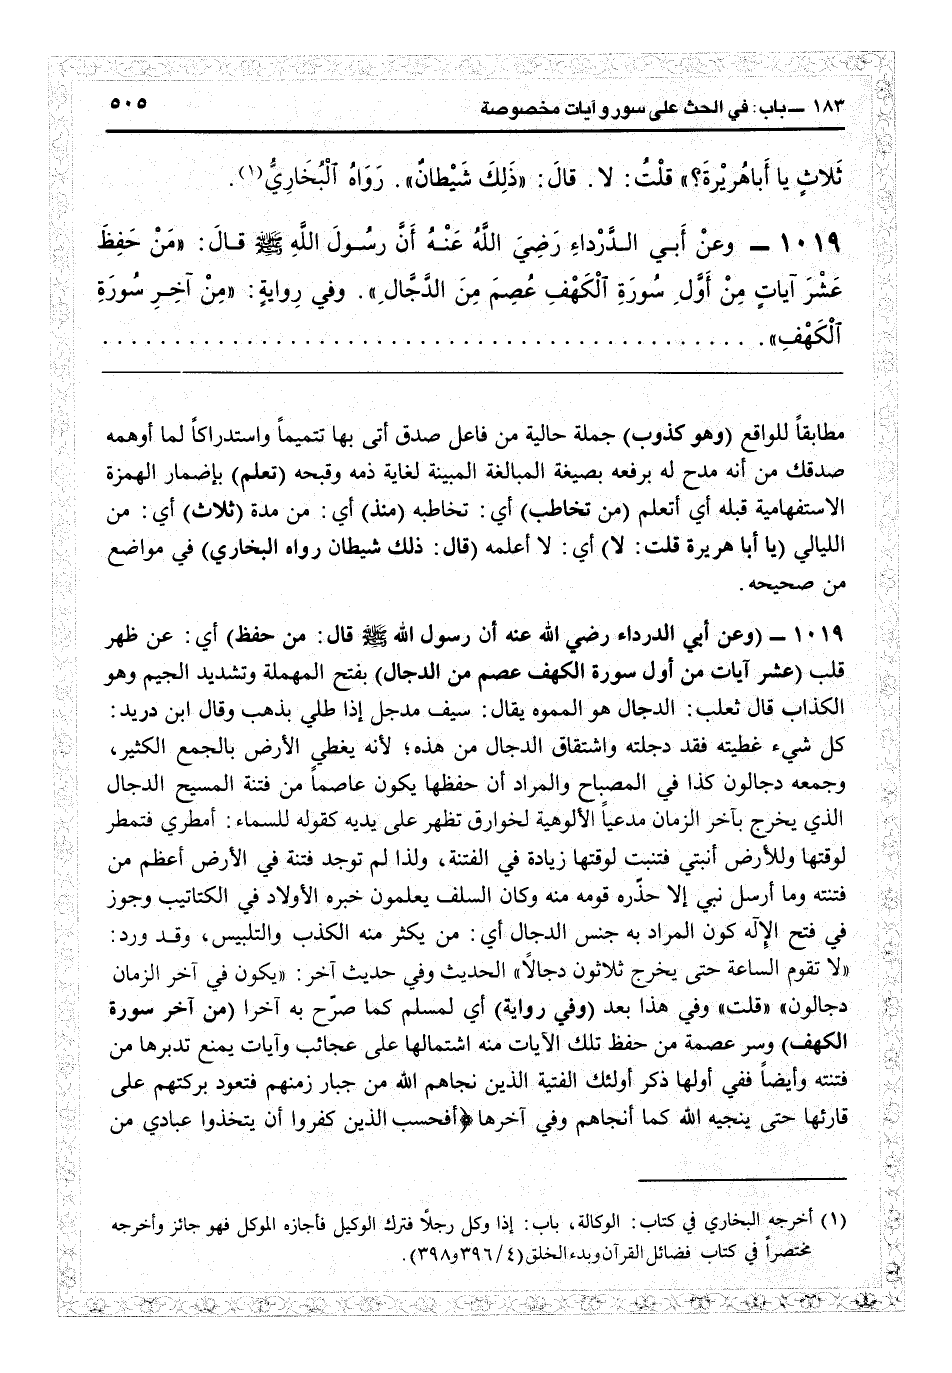 ١٨٣ ــ باب: في الحث على سور و آيات مخصوصة ٥٠٥
ثَلاثٍ يا أَباهُرَيْرةَ؟» قلْتُ: لا. قالَ: «ذَلِكَ شَيْطانٌ». رَوَاهُ ٱلْبُخَارِيُّ(١).
١٠١٩ ــ وعنْ أَبـي الـدَّرْداءِ رَضِيَ اللَّهُ عَنْـهُ أَنَّ رسُـولَ اللَّهِ ﷺ قـالَ: «مَنْ حَفِظَ
عَشْرَ آياتٍ مِنْ أَوَّلِ سُورَةِ ٱلْكَهْفِ عُصِمَ مِنَ الدَّجَّالِ». وفي رِوايةٍ: «مِنْ آخِـرِ سُورَةِ
ٱلْكَهْفِ». . . . . . . . . . . . . . . . . . . . . . . . . . . . . . . . . . . . . . . . . . . .
مطابقاً للواقع (وهو كذوب) جملة حالية من فاعل صدق أتى بها تتميماً واستدراكاً لما أوهمه
صدقك من أنه مدح له برفعه بصيغة المبالغة المبينة لغاية ذمه وقبحه (تعلم) بإضمار الهمزة
الاستفهامية قبله أي أتعلم (من تخاطب) أي: تخاطبه (منذ) أي: من مدة (ثلاث) أي: من
الليالي (يا أبا هريرة قلت: لا) أي: لا أعلمه (قال: ذلك شيطان رواه البخاري) في مواضع
من صحيحه.
١٠١٩ ــ (وعن أبي الدرداء رضي الله عنه أن رسول الله ﷺ قال: من حفظ) أي: عن ظهر
قلب (عشر آيات من أول سورة الكهف عصم من الدجال) بفتح المهملة وتشديد الجيم وهو
الكذاب قال ثعلب: الدجال هو المموه يقال: سيف مدجل إذا طلي بذهب وقال ابن دريد:
كل شيء غطيته فقد دجلته واشتقاق الدجال من هذه؛ لأنه يغطي الأرض بالجمع الكثير،
وجمعه دجالون كذا في المصباح والمراد أن حفظها يكون عاصماً من فتنة المسيح الدجال
الذي يخرج بآخر الزمان مدعياً الألوهية لخوارق تظهر على يديه كقوله للسماء: أمطري فتمطر
لوقتها وللأرض أنبتي فتنبت لوقتها زيادة في الفتنة، ولذا لم توجد فتنة في الأرض أعظم من
فتنته وما أرسل نبي إلا حذّره قومه منه وكان السلف يعلمون خبره الأولاد في الكتاتيب وجوز
في فتح الإلٰه كون المراد به جنس الدجال أي: من يكثر منه الكذب والتلبيس، وقـد ورد:
«لا تقوم الساعة حتى يخرج ثلاثون دجالاً» الحديث وفي حديث آخر: «يكون في آخر الزمان
دجالون» «قلت» وفي هذا بعد (وفي رواية) أي لمسلم كما صرّح به آخرا (من آخر سورة
الكهف) وسر عصمة من حفظ تلك الآيات منه اشتمالها على عجائب وآيات يمنع تدبرها من
فتنته وأيضاً ففي أولها ذكر أولئك الفتية الذين نجاهم الله من جبار زمنهم فتعود بركتهم على
قارئها حتى ينجيه الله كما أنجاهم وفي آخرها ﴿أفحسب الذين كفروا أن يتخذوا عبادي من
(١) أخرجه البخاري في كتاب: الوكالة، باب: إذا وكل رجلاً فترك الوكيل فأجازه الموكل فهو جائز وأخرجه
مختصراً في كتاب فضائل القرآن وبدء الخلق (٤/٣٩٦و٣٩٨).